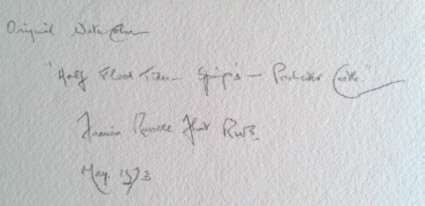 Original Water Colour
"Half Flood Tide – Springs – Porchester Castle"
Francis Russell Flint RWS.
May. 1973